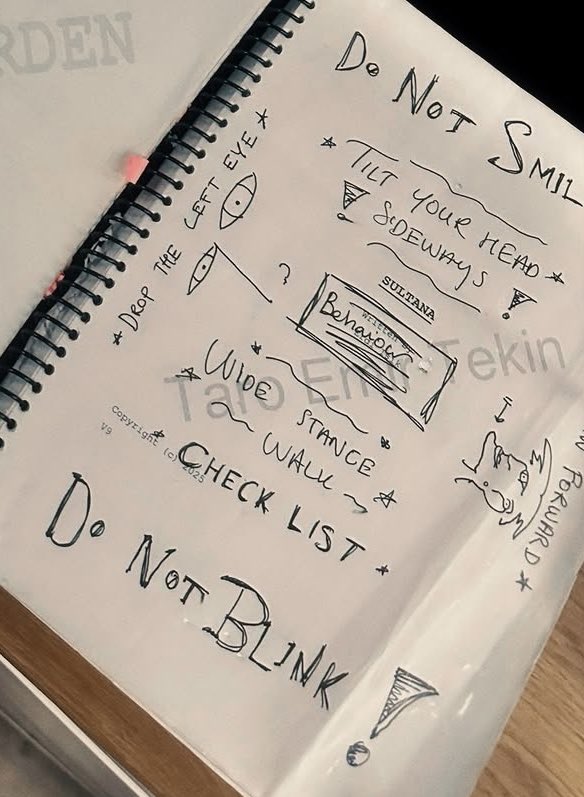 RDEN
Do NOT SMIL
TILT YOUR HEAD
SIDEWAYS
DROP THE LEFT EYE
?
SULTANA
Written
Behaviour
Taro Emir Tekin
WIDE STANCE
WALK
Copyright (c) 2025
V9
CHECK LIST
FORWARD
Do NOT BLINK
!